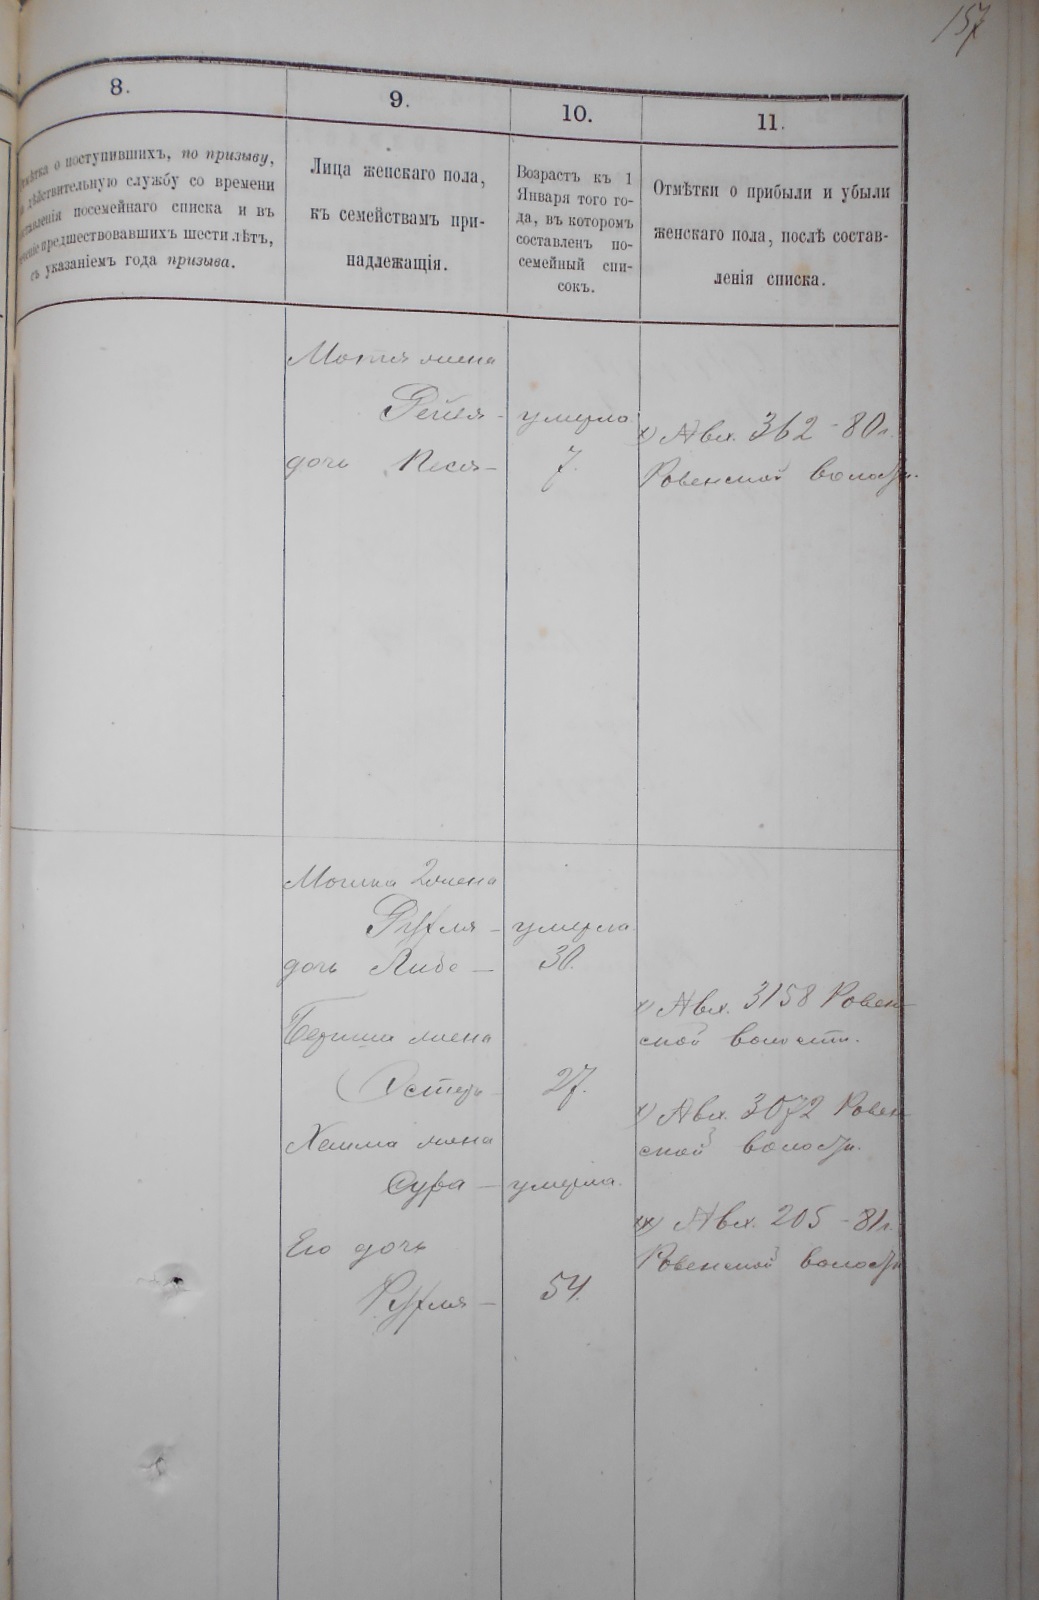 157
8.
9.
10.
11.
о поступившихъ, по призыву,
дѣйствительную службу со времени
посемейнаго списка и въ
предшествовавшихъ шести лѣтъ,
съ указаніемъ года призыва.
Лица женскаго пола,
къ семействамъ при-
надлежащія.
Возрастъ къ 1
Января того го-
да, въ которомъ
составленъ по-
семейный спи-
сокъ.
Отмѣтки о прибыли и убыли
женскаго пола, послѣ состав-
ленія списка.
жена
Рейзя - умерла
х) № вх. 362 - 80 г.
дочь Песя - 7.
Ровенской волости.
Мошка 2 жена
Рухля - умерла
дочь Либе - 30.
х) № вх. 3158 Ровен-
ской волости.
жена
Эстеръ 27.
х) № вх. 3072 Ровен-
ской волости.
Хаима жена
Сура - умерла.
хх) № вх. 205 - 81 г.
Ровенской волости
Его дочь
Рухля - 54.